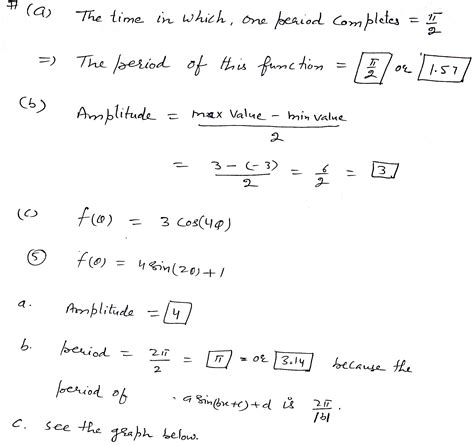 # (a) The time in which, one period completes = π/2
=) The period of this function = π/2 or 1.57
(b) Amplitude = max value - min value / 2
= 3-(-3)/2 = 6/2 = 3
(c) f(θ) = 3 cos(4θ)
⑤ f(θ) = 4 sin(2θ)+1
a. Amplitude = 4
b. period = 2π/2 = π = or 3.14 because the
period of a sin(bx+c)+d is 2π/|b|.
c. see the graph below.